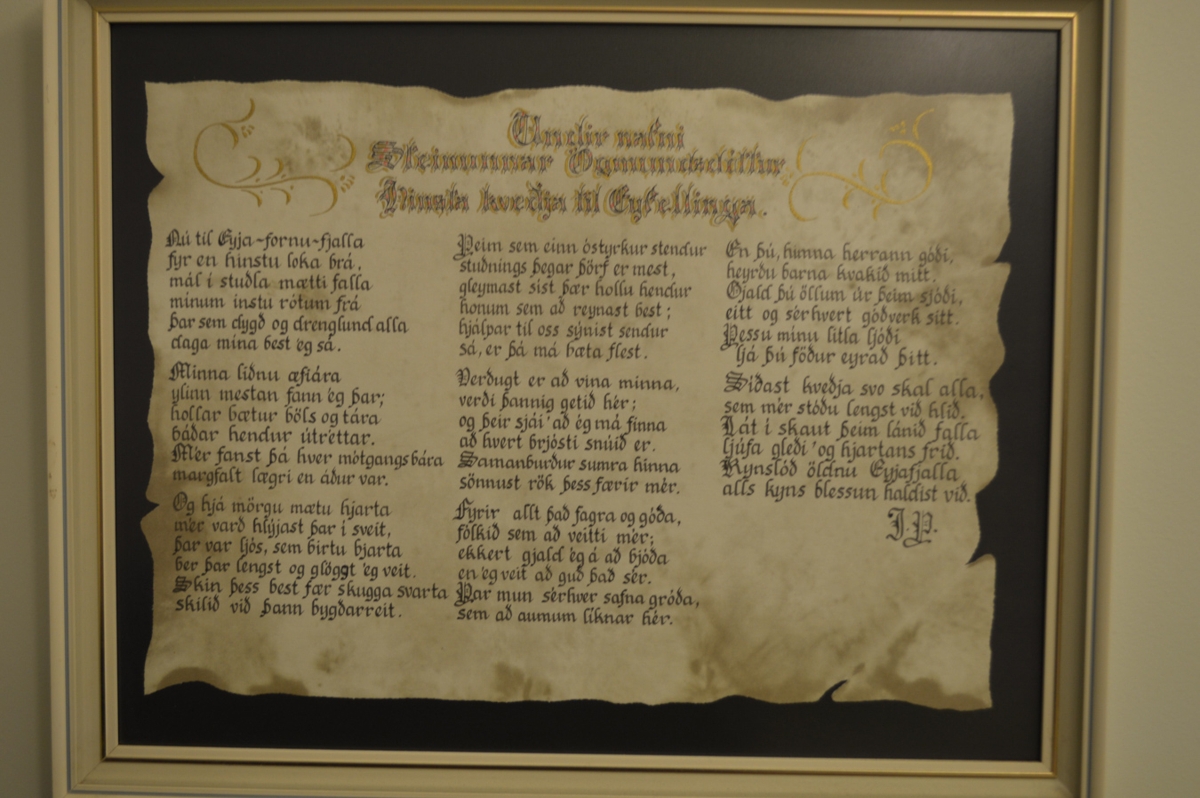 Undir nafni
Steinunnar Ögmundsdóttur
Hinsta kveðja til Eyfellinga.
Nú til Eyja-fornu-fjalla
fyr en hinstu loka brá,
mál í studla mætti falla
mínum instu rótum frá
þar sem dygð og drenglund alla
daga mína best ég sá.
Minna liðnu æfiára
ylinn mestan fann ég þar;
hollar bætur böls og tára
báðar hendur útréttar.
Mér fanst þá hver mótgangsbára
margfalt lægri en áður var.
Og hjá mörgu mætu hjarta
mér varð hlýjast þar í sveit,
þar var ljós, sem birtu bjarta
ber þar lengst og glöggt ég veit.
Skin þess best fær skugga svarta
skilið við þann bygðarreit.
Þeim sem einn óstyrkur stendur
stuðnings þegar þörf er mest,
gleymast síst þær hollu hendur
honum sem að reynast best;
hjálpar til oss sýnist sendur
sá, er þá má bæta flest.
Verðugt er að vina minna,
verði þannig getið hér;
og þeir sjái að ég má finna
að hvert brjósti snúið er.
Samanburður sumra hinna
sönnust rök þess færir mér.
Fyrir allt það fagra og góða,
fólkið sem að veitti mér;
ekkert gjald ég á að bjóða
en ég veit að guð það sér.
Þar mun sérhver safna gróða,
sem að aumum líknar hér.
En þú, himna herrann góði,
heyrðu barna kvakið mitt.
Gjald þú öllum úr þeim sjóði,
eitt og sérhvert góðverk sitt.
Þessu mínu litla ljóði
ljá þú föður eyrað þitt.
Síðast kveðja svo skal alla,
sem mér stóðu lengst við hlið.
Lát í skaut þeim lánið falla
ljúfa gleði og hjartans frið.
Kynslóð öldnu Eyjafjalla
alls kyns blessun haldist við.
J.P.